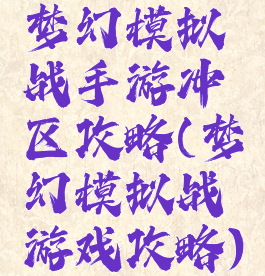 梦幻模拟
战手游冲
区攻略(梦
幻模拟战
游戏攻略)